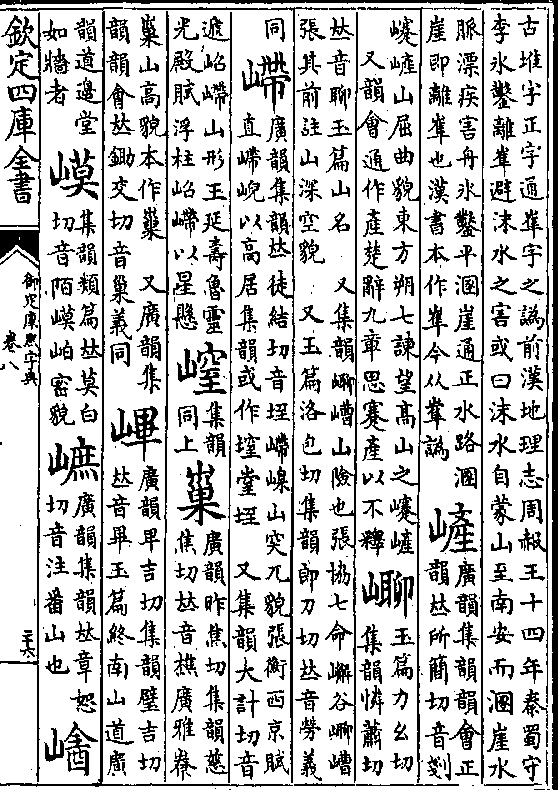 古堆字正字通崋字之譌前漢地理志周赧王十四年秦蜀守
李氷鑿離崋避沬水之害或曰沬水自蒙山至南安而溷崖水
脈漂疾害舟氷鑿平溷崖通正水路溷
崖卽離崋也漢書本作崋今从譌
嵼
廣韻集韻韻會正
韻𠀤所簡切音剗
嵼山屈曲貌東方朔七諫望高山之嵼
又韻會通作產楚辭九章思蹇產以不釋
玉篇力幺切
集韻憐蕭切
𠀤音聊玉篇山名 又集韻嶆山險也張協七命嶰谷嶆
張其前註山深空貌 又玉篇洛包切集韻郎刀切𠀤音勞義
同
嵽
廣韻集韻𠀤徒結切音垤嵽嵲山突兀貌張衡西京賦
直嵽嵲以高居集韻或作垤 又集韻大計切音
遞岹嵽山形王延壽魯靈
光殿賦浮柱岹嵽以星懸
集韻
同上
廣韻昨焦切集韻慈
焦切𠀤音樵廣雅
巢山高貌本作巢 又廣韻集
韻韻會𠀤鋤交切音巢義同
廣韻卑吉切集韻璧吉切
𠀤音畢玉篇終南山道廣
韻道邊堂
如牆者
集韻類篇𠀤莫白
切音陌岶密貌
廣韻集韻𠀤章恕
切音注番山也
欽定四庫全書
御定康熙字典
卷八
二十六